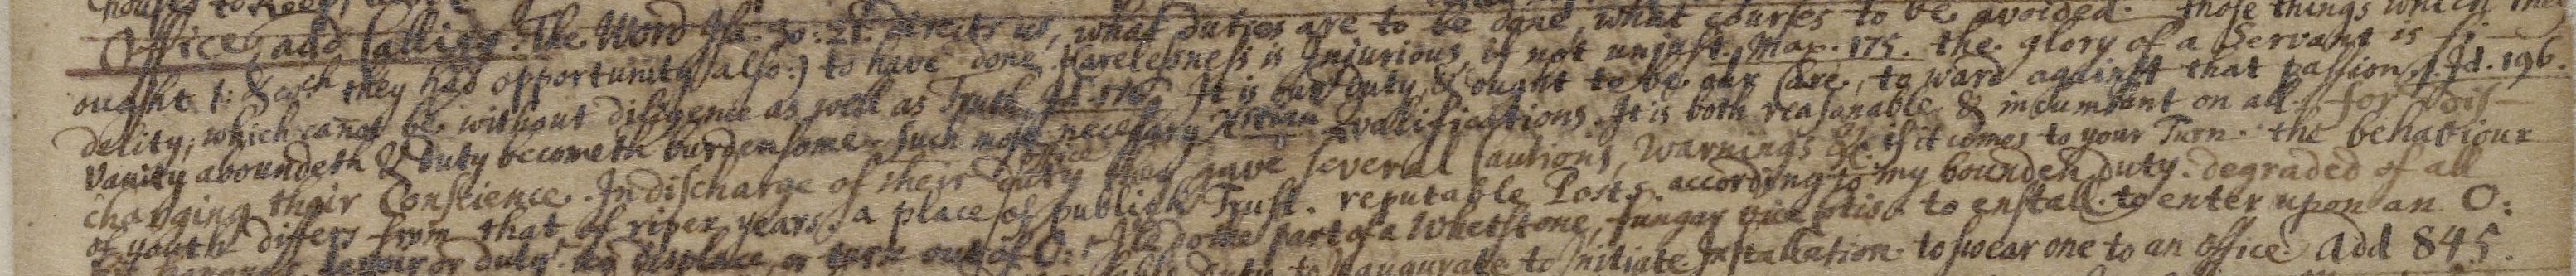 Office, add Calling. The Word Isa. 30: 21. directs us, what duties are to be done, what courses to be avoided. those things which they
ought t: & wch they had opportunity (also:) to have done. Carelesness is Injurious, if not unjust. Max. 175. the glory of a Servant is fi-
delity; which canot be without diligence as well as Truth. Id. 176. It is our Duty, & ought to be our Care, to ward against that passion. Id. 196.
Vanity aboundeth & duty becometh burdensome. Such most necessary Qualifications. It is both reasonable & incumbent on all for dis-
charging their Conscience. In discharge of their office duty they gave several Cautions, Warnings &c. if it comes to your Turn. the behaviour
of youth differs from that of riper years. a place of publick Trust. reputable Posts. according to my bounden duty. degraded of all
duty. to displace, or turn out of O: I'le do the part of a Whetstone, fungar vice cotis. to enstall. to enter upon an O:
duty to Inaugurate to Initiate. Installation. to swear one to an office. Add 845.